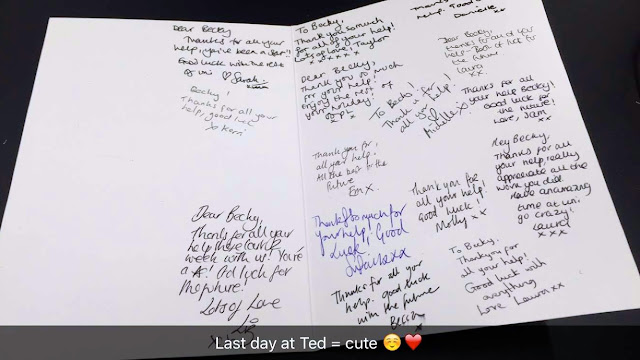 Dear Becky
Thanks for all your
help, you've been a star!!
Good luck with the rest
of uni ♡ Sarah
Becky!
Thanks for all your
help, good luck
xo Kerri
Dear Becky,
Thanks for all your
help these
week with us! You're
a ☆! Good luck for
the future!
Lots of Love
Liz
xx
To Becky,
Thank you so much
for all of your help!
Lots of love, Taylor
xxxxxx
Dear Becky,
Thank you so much
for your help!
enjoy the rest of
your holiday.
Soph
x x x
To Becky!
Thank u for
all your help!
Michelle x
Thank you for,
all your help!
All the best in the
future
Em x
Thanks so much for
your help! Good
Luck!
xx
Thank you for
all your help!
Good luck!
Molly xx
Thanks for all your
help. good luck
with the future
Becca
help. Good
Danielle
xx
Dear Becky,
thanks for all of your
help. Best of luck for
the future
Laura
xx
Thanks for all
your help Becky!
Good luck for
the future!
Love, Sam
xx
Hey Becky,
Thanks for all
your help, really
appreciate all the
work you did.
Have an amazing
time at uni.
go crazy!
Laura
xxx
To Becky,
Thank you for
all your help!
Good luck with
everything
Love, Laura xx
Last day at Ted = cute ☺️❤️